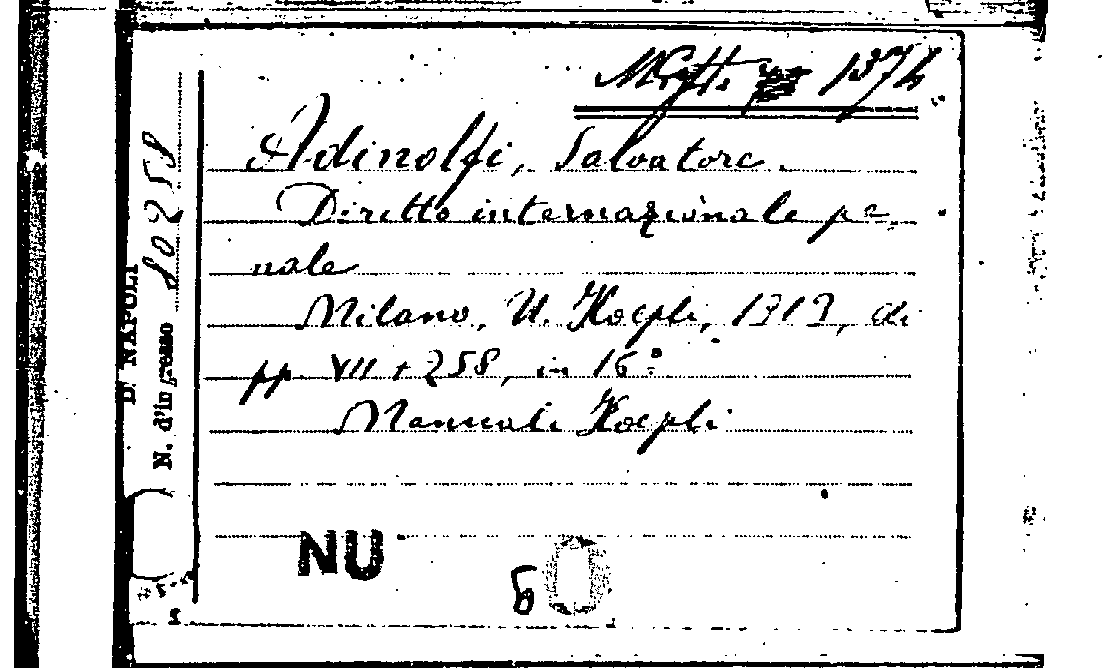 1374
Adinolfi, Salvatore.
Diritto internazionale pe-
nale
Milano, U. Hoepli, 1913, di
pp. VII + 258, in 16°.
Manuali Hoepli
NU
60
DI NAPOLI
N. d'ingresso 80258